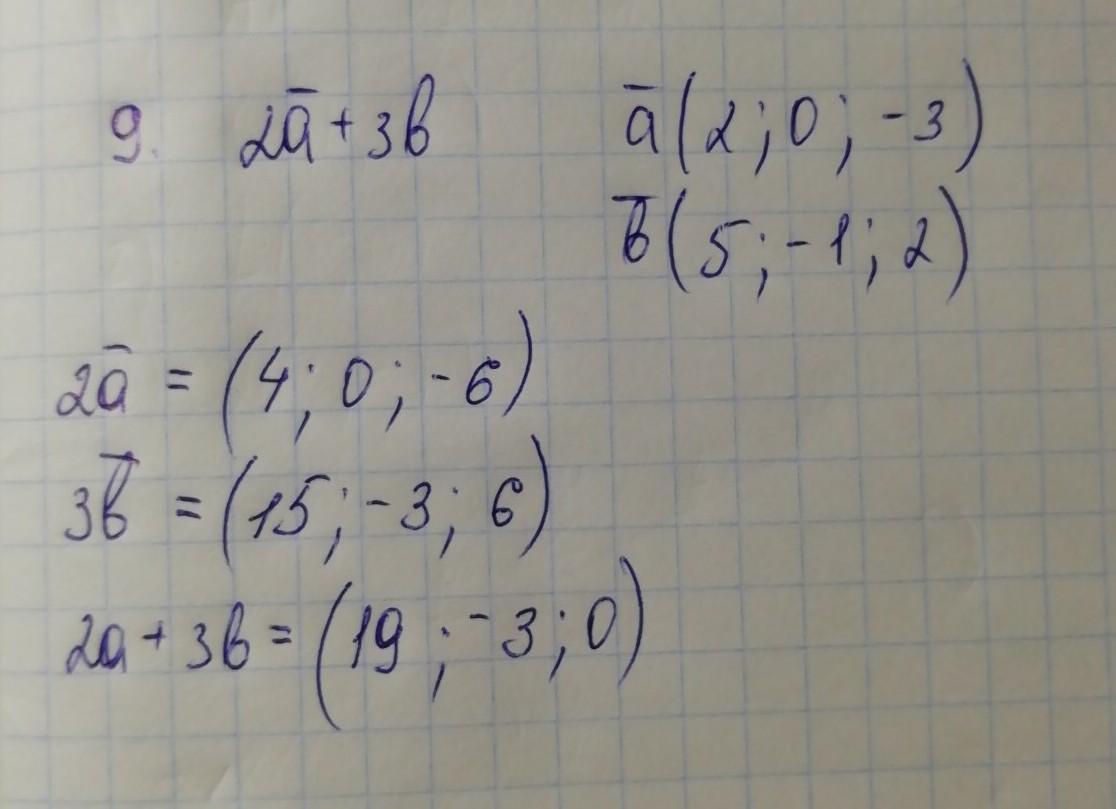 9. 2a̅ + 3b a̅ (2; 0; -3)
b̅ (5; -1; 2)
2a̅ = (4; 0; -6)
3b̅ = (15; -3; 6)
2a + 3b = (19; -3; 0)